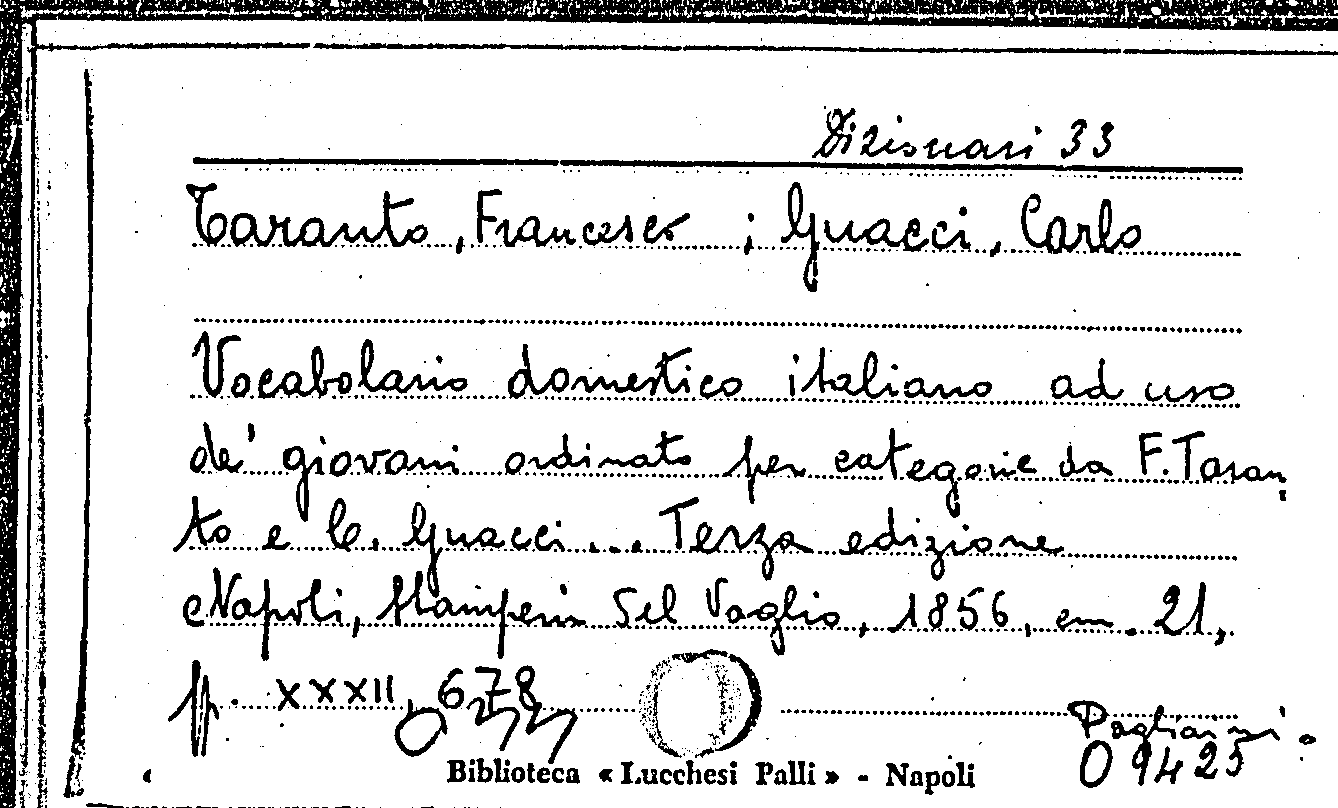 Dizionari 33
Taranto, Francesco ; Guacci, Carlo
Vocabolario domestico italiano ad uso
de' giovani ordinato per categorie da F. Taran
to e C. Guacci... Terza edizione
Napoli, Stamperia del Vaglio, 1856, cm. 21,
pp. XXXII, 678
Pagliaini.
09425
Biblioteca « Lucchesi Palli » - Napoli